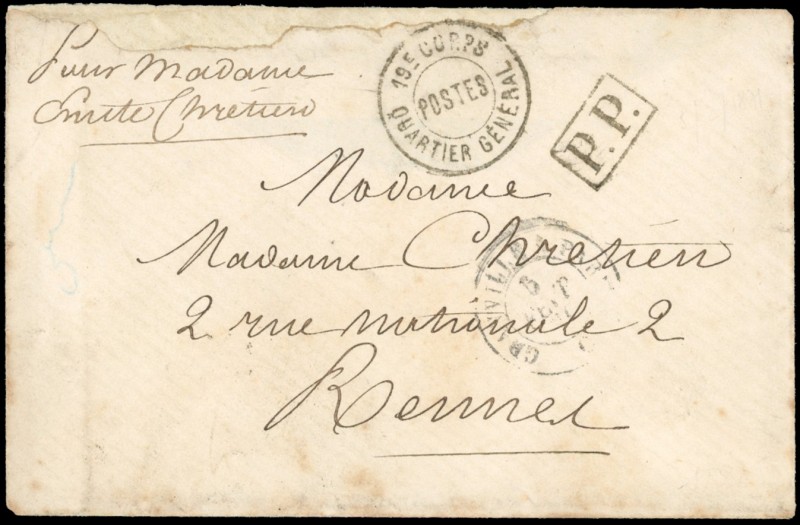 Pour Madame
Emile Chrétien
19E CORPS
POSTES
QUARTIER GÉNÉRAL
P.P.
Madame
Madame Chretien
2 rue Nationale 2
Rennes